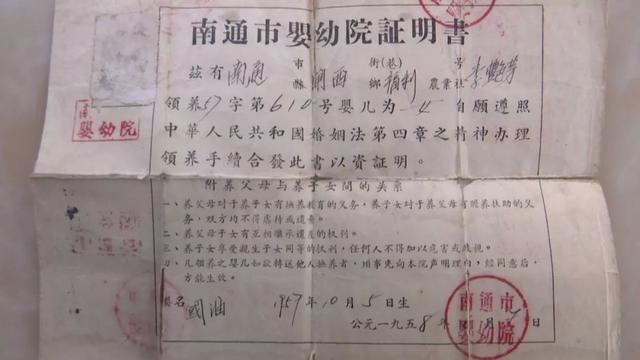 南通市嬰幼院証明書
茲有南通 市縣 西 街(巷)鄉 利 號農業社 李
領养57字第610号嬰儿为 自願遵照
中華人民共和國婚姻法第四章之精神办理
領养手續合發此書以資証明。
附养父母与养子女間的关系
一、养父母对于养子女有撫养教育的义务，养子女对于养父母有贍养扶助的义
务，双方均不得虐待或遺棄。
二、养父母子女有互相継承遺產的权利。
三、养子女享受親生子女同等的权利，任何人不得加以危害或歧視。
凡領养之嬰儿如欲轉送他人撫养者，須事先向本院声明理由，經同意后，
方能生效。
名 國 1957年10月5日生
公元一九五8年 月 日
南
嬰幼院
南通市
嬰幼院